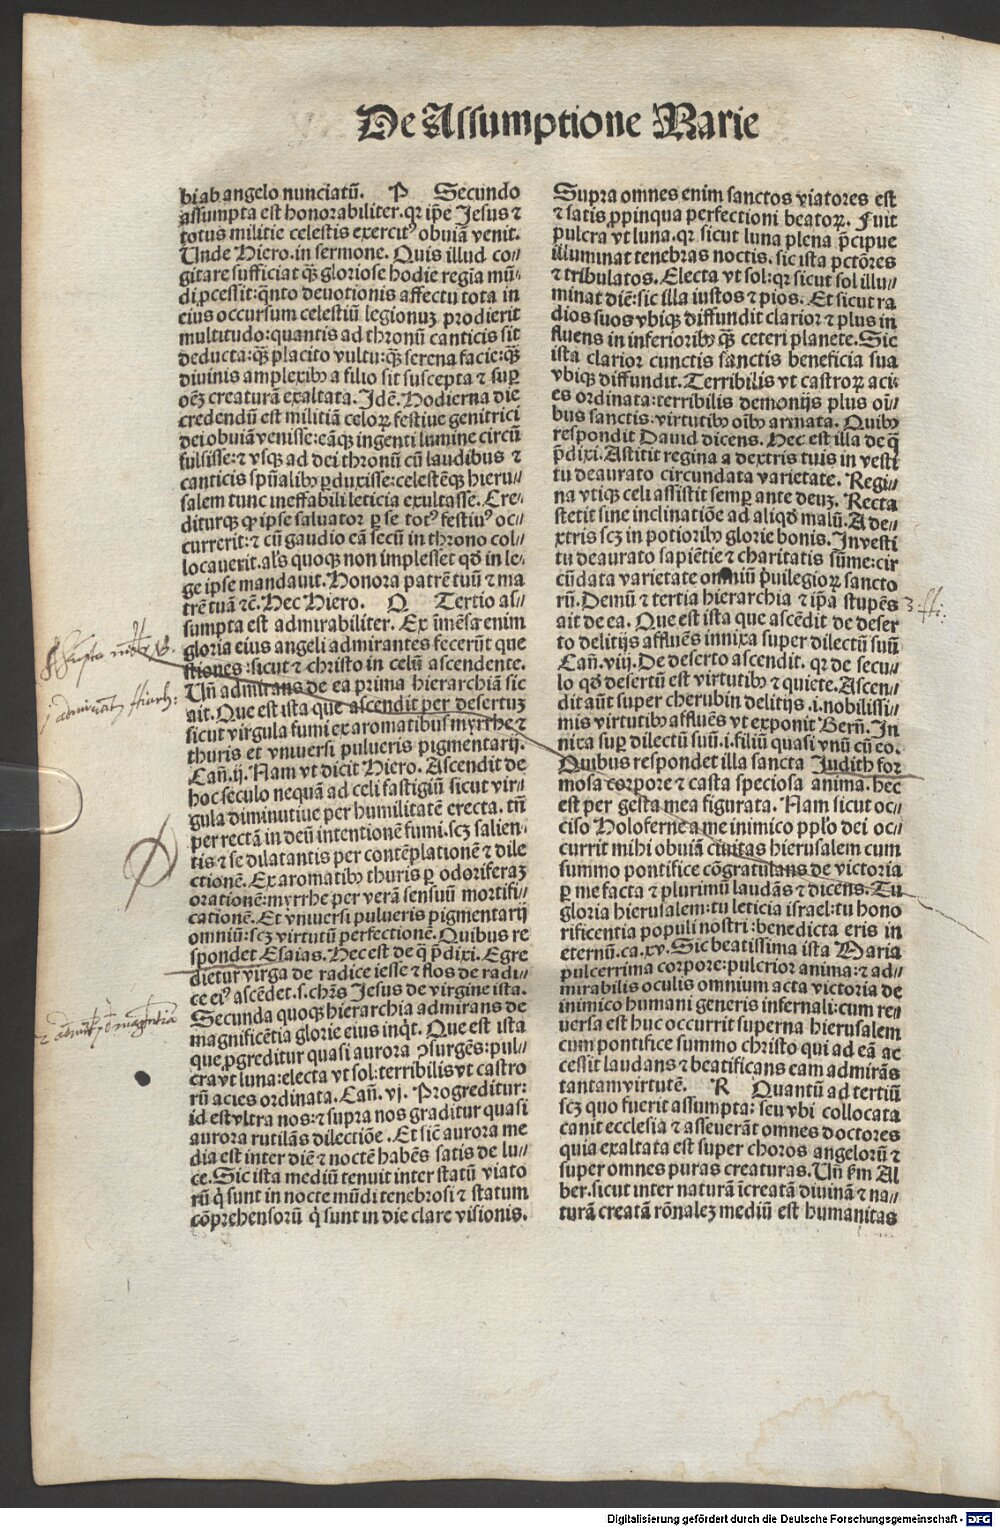 De Assumptione Marie
biab angelo nunciatū. P Secundo
assumpta est honorabiliter. qꝛ ip̄e Jesus ⁊
totus militie celestis exercitꝰ obuiā venit.
Unde Hiero. in sermone. Quis illud co⸗
gitare sufficiat qꝫ̄ gloriose hodie regia mū⸗
di ꝓcessit: q̄nto deuotionis affectu tota in
eius occursum celestiū legionuꝫ prodierit
multitudo: quantis ad thronū canticis sit
deducta: qꝫ̄ placito vultu: qꝫ̄ serena facie: qꝫ̄
diuinis amplexibꝰ a filio sit suscepta ⁊ suꝑ
oēꝫ creaturā exaltata. Idē. Hodierna die
credendū est militiā celoꝝ festiue genitrici
dei obuiā venisse: eāqꝫ ingenti lumine circū
fulsisse: ⁊ vsqꝫ ad dei thronū cū laudibus ⁊
canticis sp̄ualibꝰ ꝑduxisse: celestēqꝫ hieru⸗
salem tunc ineffabili leticia exultasse. Cre⸗
diturqꝫ ꝙ ipse saluator ꝑ se totꝰ festiuꝰ oc⸗
currerit: ⁊ cū gaudio eā secū in throno col⸗
locauerit. al's quoqꝫ non implesset qd̄ in le⸗
ge ipse mandauit. Honora patrē tuū ⁊ ma
trē tuā ⁊c̄. Hec Hiero. Q Tertio as⸗
sumpta est admirabiliter. Ex īmēsa enim
gloria eius angeli admirantes fecerūt que
stiones: sicut ⁊ christo in celū ascendente.
Un̄ admirans de ea prima hierarchiā sic
ait. Que est ista que ascendit per desertuꝫ
sicut virgula fumi ex aromatibus myrrhe ⁊
thuris et vniuersi pulueris pigmentarij.
Cañ. ij. Nam vt dicit Hiero. Ascendit de
hoc seculo nequā ad celi fastigiū sicut vir⸗
gula diminutiue per humilitatē erecta. tn̄
per rectā in deū intentionē fumi. scꝫ salien⸗
tis ⁊ se dilatantis per contēplationē ⁊ dile
ctionē. Ex aromatibꝰ thuris ꝑ odoriferaꝫ
orationē: myrrhe per verā sensuū mortifi⸗
cationē. Et vniuersi pulueris pigmentarij
omniū: scꝫ virtutū perfectionē. Quibus re
spondet Esaias. Hec est de q̄ p̄dixi. Egre
dietur virga de radice iesse ⁊ flos de radi⸗
ce eiꝰ ascēdet. s. chrs̄ Jesus de virgine ista.
Secunda quoqꝫ hierarchia admirans de
magnificētia glorie eius inqt. Que est ista
que ꝓgreditur quasi aurora ꝯsurgēs: pul⸗
cra vt luna: electa vt sol: terribilis vt castro
rū acies ordinata. Cañ. vj. Progreditur:
id est vltra nos: ⁊ supra nos graditur quasi
aurora rutilās dilectiōe. Et sic̄ aurora me
dia est inter diē ⁊ noctē habēs satis de lu⸗
ce. Sic ista mediū tenuit inter statū viato
rū q̇ sunt in nocte mūdi tenebrosi ⁊ statum
cōprehensorū q̇ sunt in die clare visionis.
Supra omnes enim sanctos viatores est
⁊ satis ꝓpinqua perfectioni beatoꝝ. Fuit
pulcra vt luna. qꝛ sicut luna plena p̄cipue
illuminat tenebras noctis. sic ista pctōres
⁊ tribulatos. Electa vt sol: qꝛ sicut sol illu⸗
minat diē: sic illa iustos ⁊ pios. Et sicut ra
dios suos vbiqꝫ diffundit clarior ⁊ plus in
fluens in inferioribꝰ qꝫ̄ ceteri planete. Sic
ista clarior cunctis sanctis beneficia sua
vbiqꝫ diffundit. Terribilis vt castroꝝ aci⸗
es ordinata: terribilis demonijs plus oī⸗
bus sanctis. virtutibꝰ oībꝰ armata. Quibꝰ
respondit Dauid dicens. Hec est illa de q̄
p̄dixi. Astitit regina a dextris tuis in vesti
tu deaurato circundata varietate. Regi⸗
na vtiqꝫ celi assistit semꝑ ante deuꝫ. Recta
stetit sine inclinatiōe ad aliqd̄ malū. A de⸗
xtris scꝫ in potioribꝰ glorie bonis. In vesti
tu deaurato sapiētie ⁊ charitatis sūme: cir
cūdata varietate omniū p̄uilegioꝝ sancto
rū. Demū ⁊ tertia hierarchia ⁊ ip̄a stupēs
ait de ea. Que est ista que ascēdit de deser
to delitijs affluēs innixa super dilectū suū
Cañ. viij. De deserto ascendit. qꝛ de secu⸗
lo qd̄ desertū est virtutibꝰ ⁊ quiete. Ascen⸗
dit aūt super cherubin delitijs. i. nobilissi⸗
mis virtutibꝰ affluēs vt exponit Berñ. In
nixa suꝑ dilectū suū. i. filiū quasi vnū cū eo.
Quibus respondet illa sancta Judith for
mosa corpore ⁊ casta speciosa anima. hec
est per gesta mea figurata. Nam sicut oc⸗
ciso Holoferne a me inimico pplo dei oc⸗
currit mihi obuiā ciuitas hierusalem cum
summo pontifice cōgratulans de victoria
ꝑ me facta ⁊ plurimū laudās ⁊ dicens. Tu
gloria hierusalem: tu leticia israel: tu hono
rificentia populi nostri: benedicta eris in
eternū. ca. xv. Sic beatissima ista Maria
pulcerrima corpore: pulcrior anima: ⁊ ad⸗
mirabilis oculis omnium acta victoria de
inimico humani generis infernali: cum re⸗
uersa est huc occurrit superna hierusalem
cum pontifice summo christo qui ad eā ac
cessit laudans ⁊ beatificans eam admirās
tantam virtutē. R Quantū ad tertiū
scꝫ quo fuerit assumpta: seu vbi collocata
canit ecclesia ⁊ asseuerāt omnes doctores
quia exaltata est super choros angelorū ⁊
super omnes puras creaturas. Un̄ fm Al
ber. sicut inter naturā īcreatā diuinā ⁊ na⸗
turā creatā rōnaleꝫ mediū est humanitas
Digitalisierung gefördert durch die Deutsche Forschungsgemeinschaft - DFG